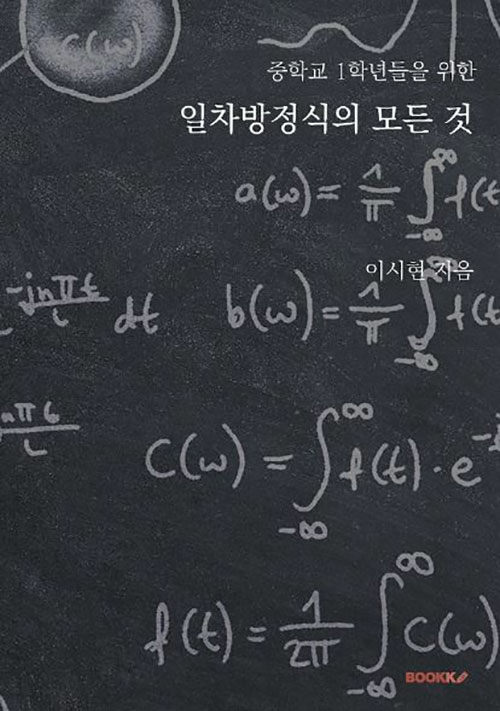 C(ω)
중학교 1학년들을 위한
일차방정식의 모든 것
a(ω)= 1/π ∫ f(t
-∞ ∞
이시현 지음
-jnπt/L dt
b(ω)= 1/π ∫ f(t
-∞ ∞
nπ6/L
C(ω) = ∫ f(t)·e
-∞ ∞
f(t) = 1/2π ∫ C(ω)
-∞ ∞
BOOKK